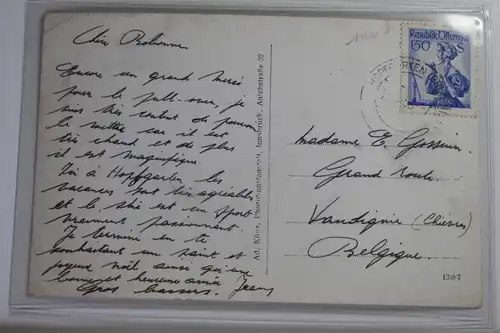 Chère
Encore un grand merci
pour le pull-over, je
suis très content de pouvoir
le mettre car il est
très chaud et de plus
il est magnifique.
Ici à Hopfgarten les
vacances sont très agréables
et le ski est un sport
vraiment passionnant.
Je termine en te
souhaitant un saint et
joyeux noël ainsi qu'une
bonne et heureuse année
Gros baisers. Jean
Ad. Künz, Photokunstanstalt, Innsbruck, Amthorstraße 32
Republik Österreich
1.50 S
HOPFGARTEN
Madame E. Gossuin
Grand Route
Vaudignies (Chièvres)
Belgique.